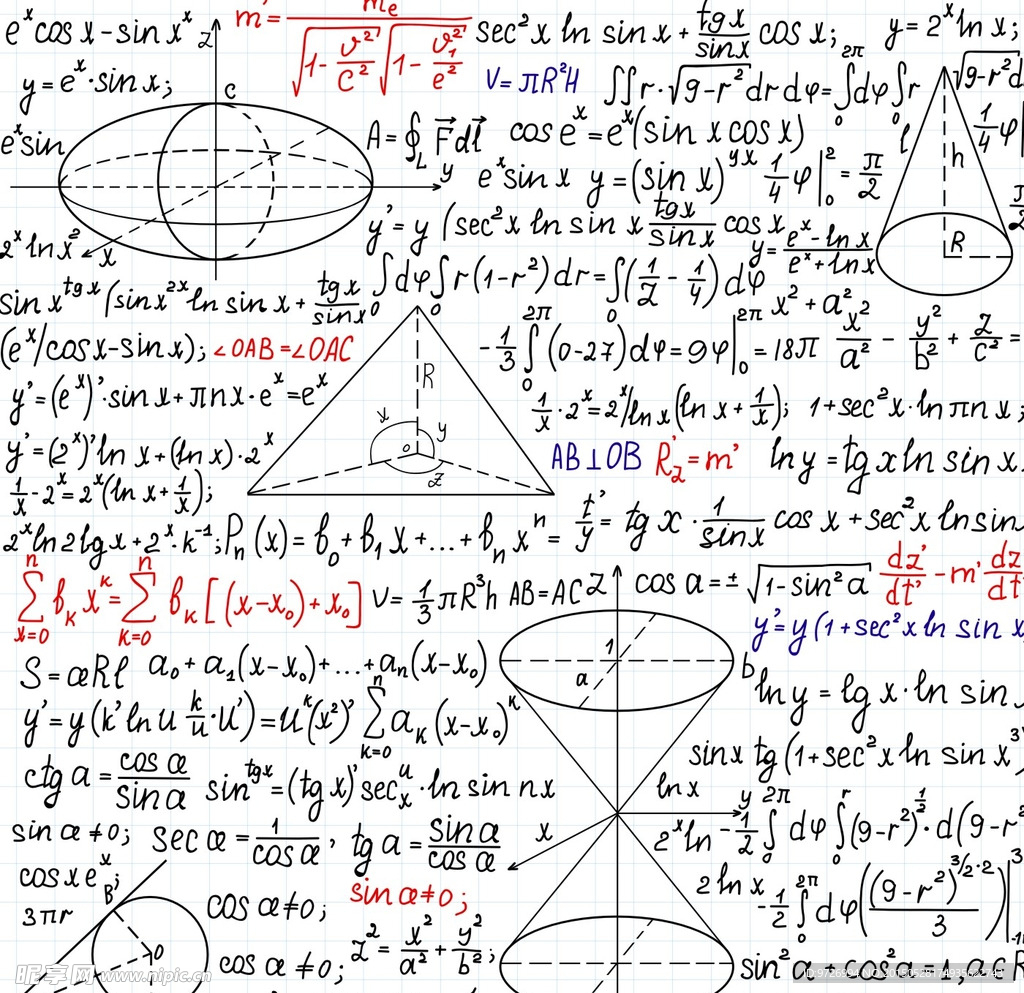 e^x cos x - sin x^x
m' = m_e / √(1 - v²/c²) √(1 - v₁²/e²)
sec²x ln sin x + tg x / sin x cos x;
y = 2^x ln x;
y = e^x · sin x;
V = πR²H
∫∫ r · √(9-r²) dr dφ = ∫₀^2π dφ ∫₀ r √(9-r²) d
z
C
e^x sin
A = ∮_L F⃗ dl⃗
cos e^x = e^x (sin x cos x)
l
h
1/4 φ|
y
e^x sin x
y = (sin x)^yx
1/4 φ|₀² = π/2
π/2
2^x ln x²
x
y' = y (sec²x ln sin x tg x / sin x cos x
y = e^x - ln x / e^x + ln x
R
∫₀ dφ ∫₀ r (1-r²) dr = ∫₀ (1/2 - 1/4) dφ
sin x^tg x (sin x^2x ln sin x + tg x / sin x
x² + a²
(e^x/cos x - sin x);
∠OAB = ∠OAC
- 1/3 ∫₀^2π (0-27) dφ = 9φ|₀^2π = 18π
x²/a² - y²/b² + z/c² =
R
y' = (e^x)' · sin x + πnx · e^x = e^x
1/x · 2^x = 2^x/ln x (ln x + 1/x);
1 + sec²x · ln πn x;
x
y
o
z
y' = (2^x)' ln x + (ln x) · 2^x
AB ⊥ OB
R₂' = m'
ln y = tg x ln sin x.
1/x - 2^x = 2^x (ln x + 1/x);
2^x ln 2 lg x + 2^x · k^-1;
P_n(x) = b₀ + b₁x + ... + b_n x^n =
t'/y = tg x · 1/sin x cos x + sec²x ln sin
∑_{x=0}^n b_k x^k = ∑_{k=0}^n b_k [(x-x₀) + x₀]
V = 1/3 πR³h
AB = AC
z
cos a = ± √(1 - sin²a)
dz'/dt' - m' dz/dt
y' = y (1 + sec²x ln sin x
S = æRl
a₀ + a₁(x-x₀) + ... + a_n(x-x₀)
1
a
b
ln y = lg x · ln sin
y' = y (k' ln u k/u · u') = u^k (x²)'
∑_{k=0}^n a_k (x-x₀)^k
sin x tg (1 + sec²x ln sin x³
ctg a = cos æ / sin a
sin^tgx = (tg x)' sec_x^u · ln sin nx
ln x
y
sin æ ≠ 0;
sec æ = 1/cos æ,
tg a = sin a / cos æ
x
2^x ln
- 1/2 ∫₀^2π dφ ∫₀^r (9-r²)^1/2 · d(9-r²
cos x e^x;
3πr
B
cos æ ≠ 0;
sin æ ≠ 0;
2 ln x
- 1/2 ∫₀^2π dφ ((9-r²)^3/2·2 / 3)|³
O
cos æ ≠ 0;
z² = x²/a² + y²/b²;
sin²a + cos²a = 1, a ∈ R
昵享网 www.nipic.cn